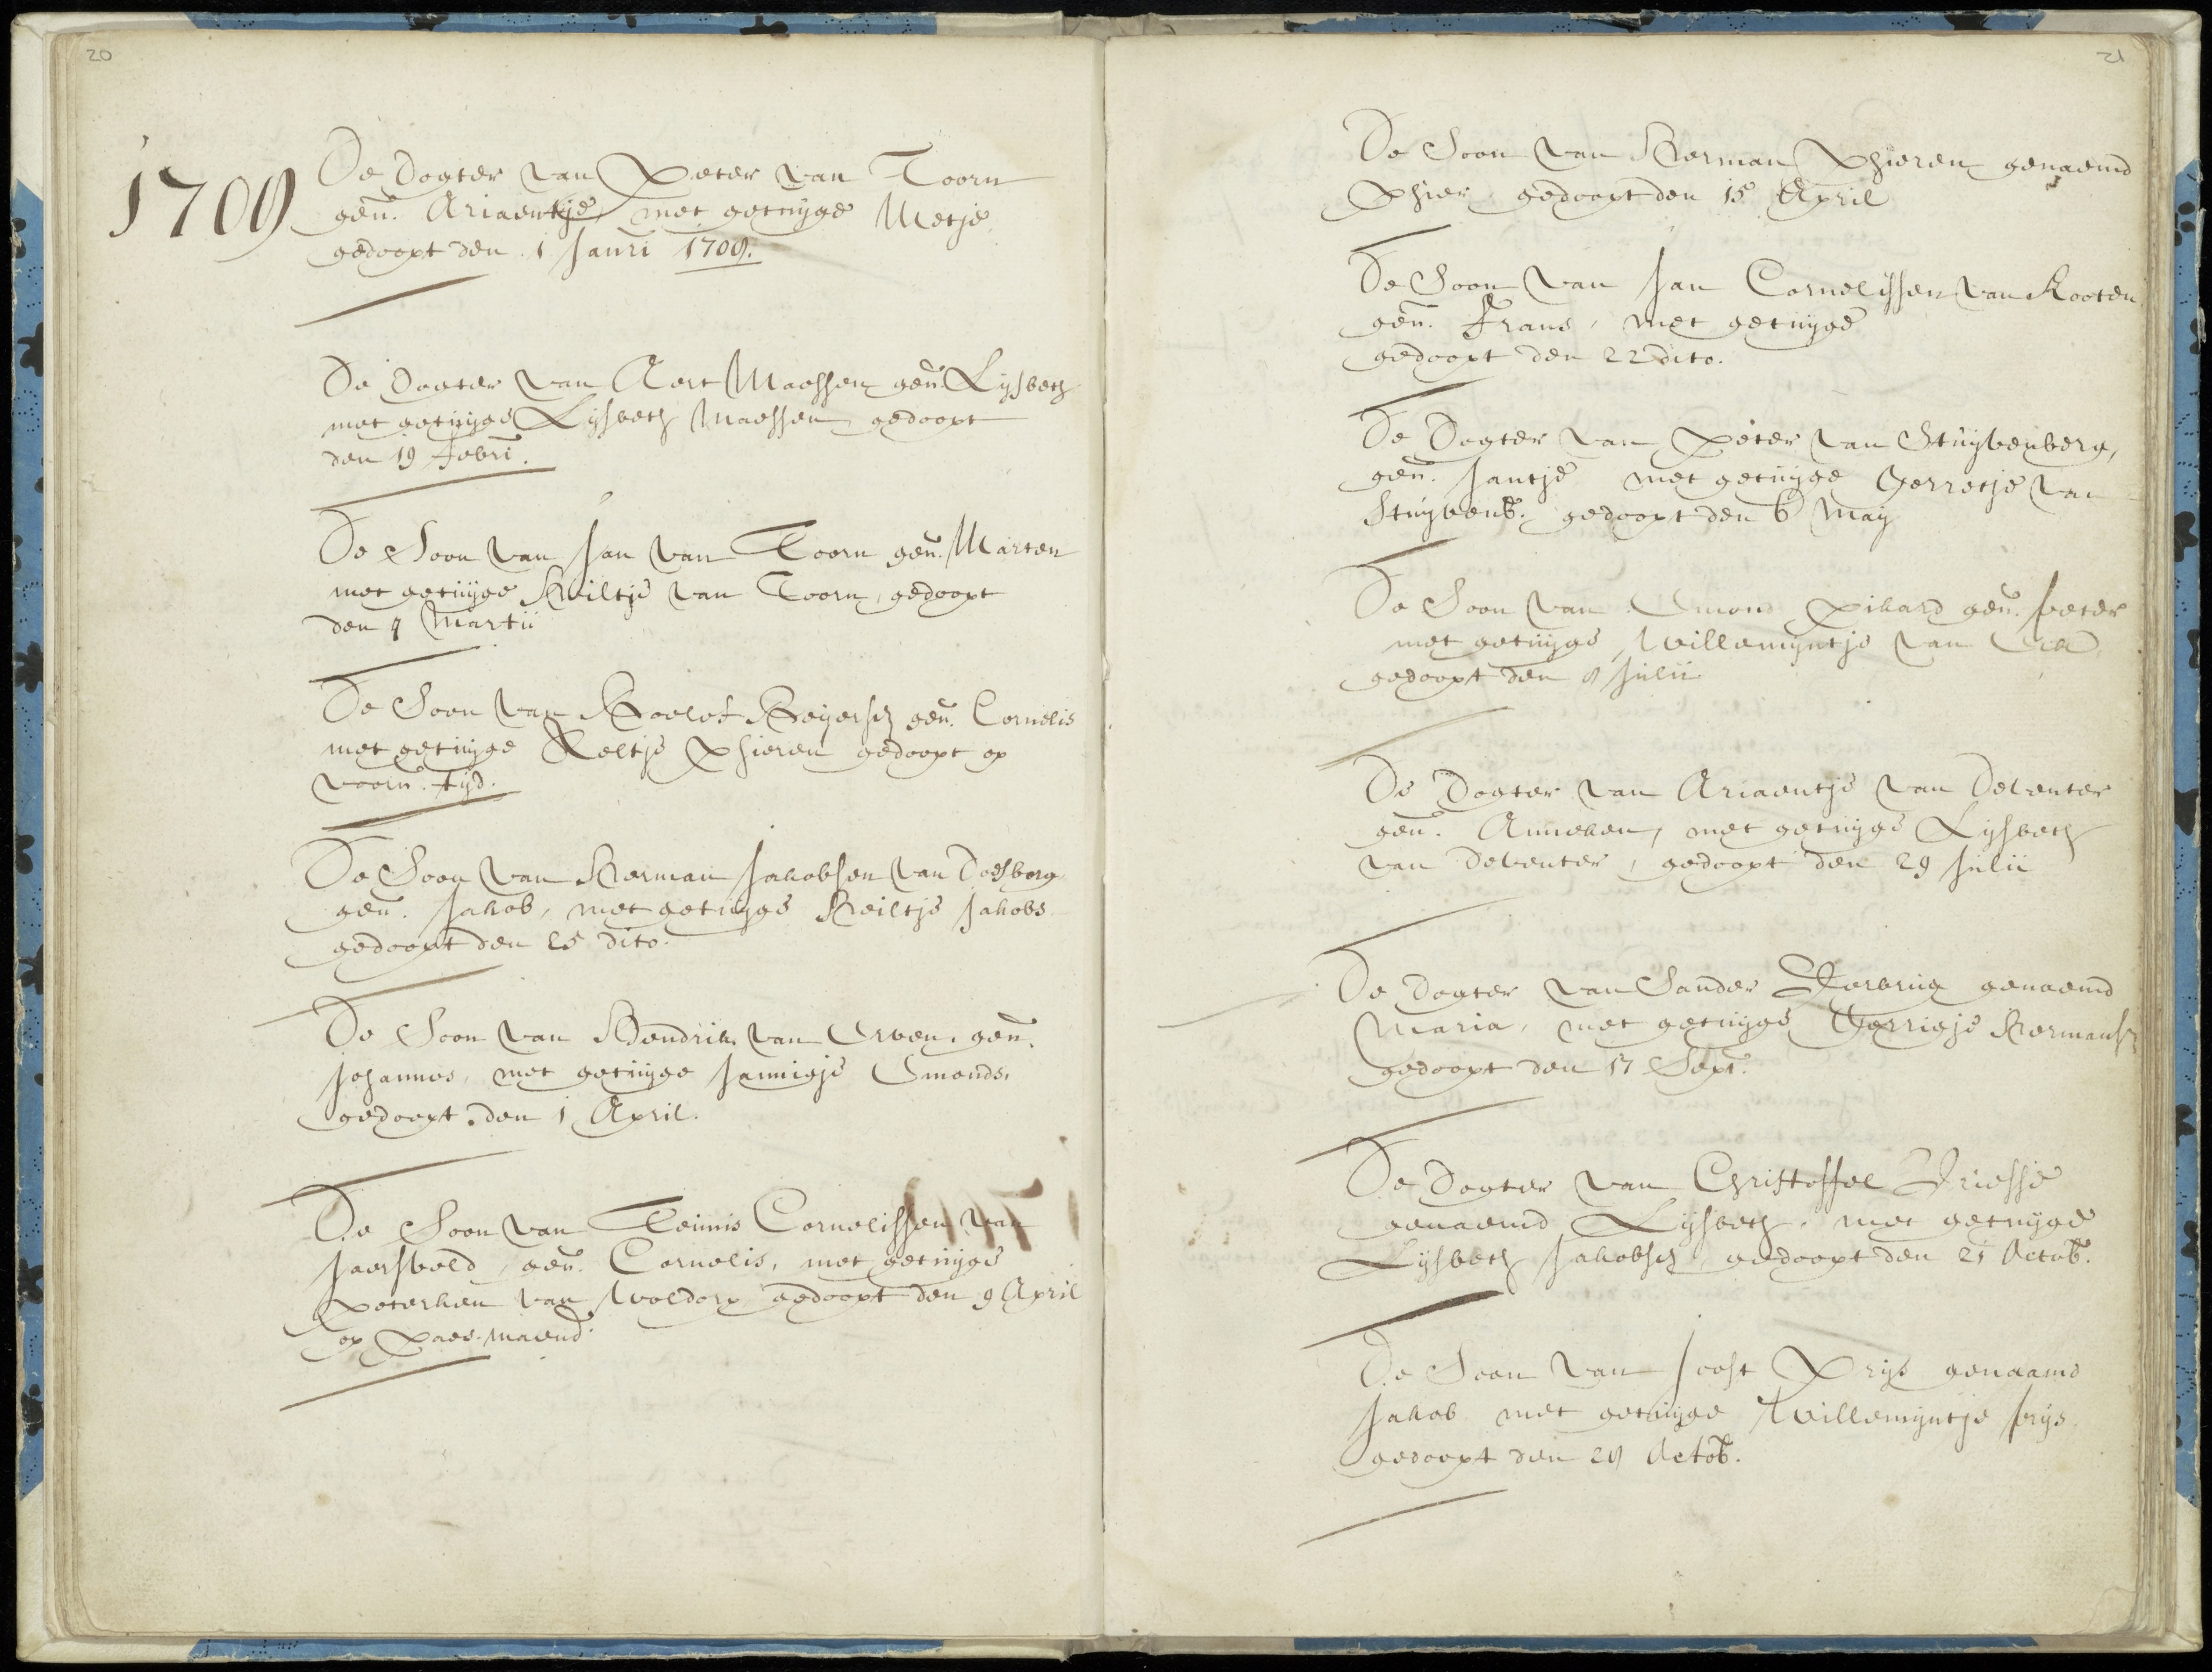 20
1709
De Dogter van Peter van Toorn
gen̄. Ariaentje, met getuijge Metje
gedoopt den 1 Janri 1709.
De Dogter van Aert Maessen gen̄. Lijsbeth
met getuijge Lijsbeth Maessen gedoopt
den 19 Febri.
De Soon van Jan van Toorn gen̄. Marten
met getuijge Heiltje van Toorn, gedoopt
den 4 Martii
De Soon van Roelof Reijersz gen̄. Cornelis
met getuijge Neeltje Phieren gedoopt op
voorn̄. tijd.
De Soon van Herman Jakobsen van Doesborg
gen̄. Jakob, met getuijge Heiltje Jakobs
gedoopt den 25 dito.
De Soon van Hendrik van Erven, gen̄.
Johannes, met getuijge Jannigje Emonds,
gedoopt den 1 April.
De Soon van Teunis Cornelissen van
Jaersveld, gen̄. Cornelis, met getuijge
Peterken van Woldorp gedoopt den 9 April
op Paes-maend.
21
De Soon van Herman Phieren genaemd
Phier, gedoopt den 15 April
De Soon van Jan Cornelissen van Kooten
gen̄. Frans, met getuijge
gedoopt den 22 dito.
De Dogter van Peter van Stuijvenberg,
gen̄. Jantje met getuijge Gerretje van
Stuijvenb. gedoopt den 6 Maij
De Soon van Emond Pikard gen̄. Peter
met getuijge Willemijntje van
gedoopt den 8 Julii
De Dogter van Ariaentje van Deventer
gen̄. Anneken, met getuijge Lijsbeth
van Deventer, gedoopt den 29 Julii
De Dogter van Sander Verbrug genaemd
Maria, met getuijge Gerrigje Hermans
gedoopt den 17 Sept.
De Dogter van Christoffel Driessje
genaemd Lijsbeth, met getuijge
Lijsbeth Jakobsz gedoopt den 21 Octob.
De Soon van Joost Prijs genaamd
Jakob met getuijge Willemijntje Prijs
gedoopt den 28 Octob.